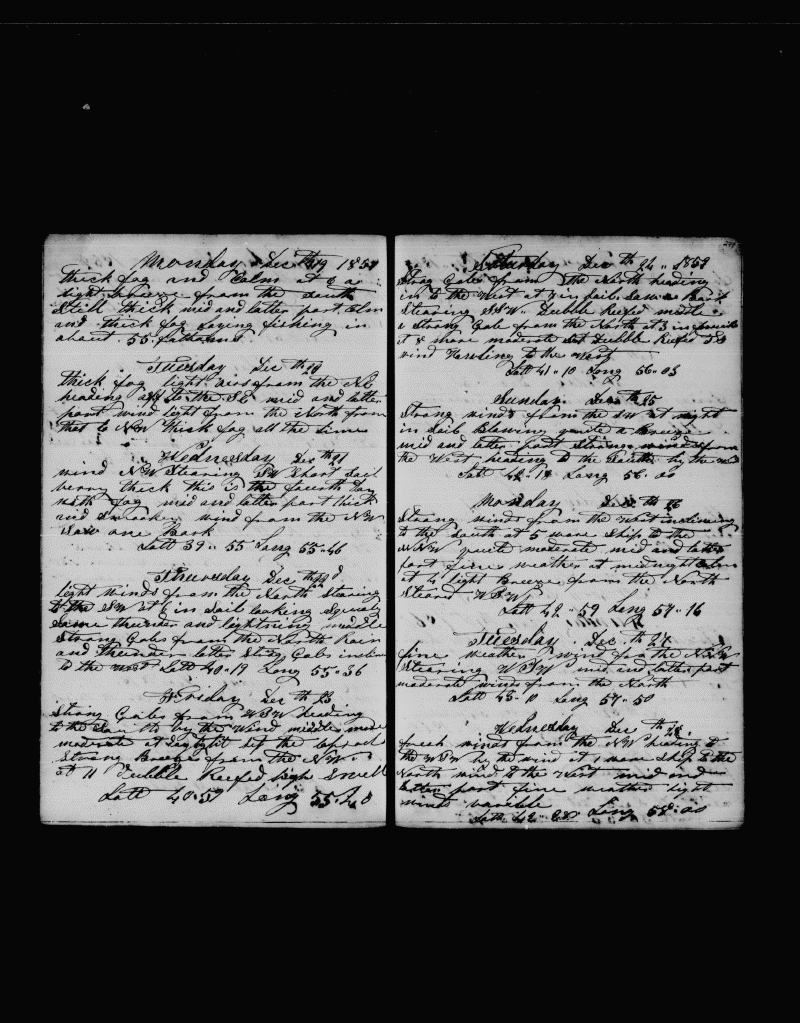 Monday Dec th 19 1859
thick fog and Calm at 6 a
light breeze from the South
Still thick mid and latter part Calm
and thick fog laying fishing in
about 55 fathoms
Tuesday Dec th 20
thick fog light airs from the NE
heading to the SE mid and latter
part wind light from the North from
that to NW thick fog all the time
Wednesday Dec th 21
wind NW Stearing SW Short Sail
verry thick this is the fourth Day
with fog mid and latter part thick
and Smokey wind from the NW
Saw one Bark
Latt 39 .. 55 Long 55 .. 46
Thursday Dec th 22
light winds from the North Stearing
to the SW at 6 in Sail looking Squaly
Some thunder and lightning middle
Strong Gales from the North Rain
and Thunder latter Strong Gales
to the West Latt 40 .. 19 Long 55 .. 36
Friday Dec th 23
Strong Gales from WSW heading
to the by the Wind middle more
moderate at Set the
Strong Breeze from the NW
at 11 Dubble Reefed high Swell
Latt 40 .. 59 Long 55 .. 40
Saturday Dec th 24 .. 1859
Strong Gales from the North heading
in to the West at 7 in Sail Saw a Bark
Stearing SSW Dubble Reefed middle
a Strong Gale from the North at 3 in
at 8 more moderate Set Dubble Reefed
wind Hawling to the West
Latt 41 .. 10 Long 56 .. 03
Sunday Dec th 25
Strong winds from the SW at night
in Sail Blowing quite a Breeze
mid and latter part Strong winds from
the West heading to the by the wind
Latt 42 .. 18 Long 56 .. 00
Monday Dec th 26
Strong winds from the West
to the South at 5 wore Ship to the
NNW quite moderate mid and latter
part fine weather at midnight Calm
at 4 light Breeze from the North
Steard WSW
Latt 42 .. 59 Long 57 .. 16
Tuesday Dec th 27
fine weather wind from the NNW
Stearing WSW mid and latter part
moderate winds from the North
Latt 43 .. 10 Long 57 .. 50
Wednesday Dec th 28
fresh winds from the NW heading to
the WSW by the wind at 1 wore Ship to the
North wind to the West mid and
latter part fine weather light
winds variable
Latt 42 .. Long 58 .. 00